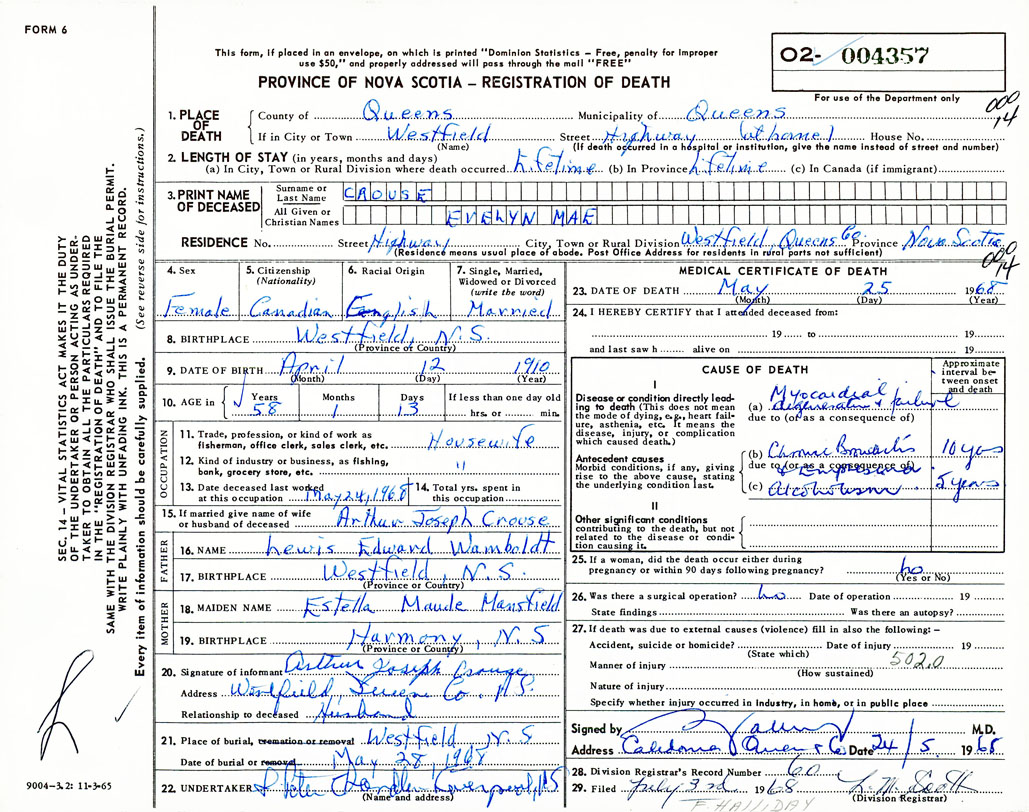 FORM 6
This form, if placed in an envelope, on which is printed "Dominion Statistics – Free, penalty for improper
use $50," and properly addressed will pass through the mail "FREE"
PROVINCE OF NOVA SCOTIA – REGISTRATION OF DEATH
02- 004357
For use of the Department only
000
14
1. PLACE OF DEATH
County of Queens Municipality of Queens
If in City or Town Westfield Street Highway (at home) House No.
(Name) (If death occurred in a hospital or institution, give the name instead of street and number)
2. LENGTH OF STAY (in years, months and days)
(a) In City, Town or Rural Division where death occurred Lifetime (b) In Province Lifetime (c) In Canada (if immigrant)
3. PRINT NAME OF DECEASED
Surname or Last Name CROUSE
All Given or Christian Names EVELYN MAE
RESIDENCE No. Street Highway City, Town or Rural Division Westfield, Queens Co. Province Nova Scotia
(Residence means usual place of abode. Post Office Address for residents in rural parts not sufficient)
000
14
4. Sex
Female
5. Citizenship
(Nationality)
Canadian
6. Racial Origin
English
7. Single, Married,
Widowed or Divorced
(write the word)
Married
8. BIRTHPLACE Westfield, N.S.
(Province or Country)
9. DATE OF BIRTH April 12 1910
(Month) (Day) (Year)
10. AGE in
Years Months Days If less than one day old
58 1 13 hrs. or min.
OCCUPATION
11. Trade, profession, or kind of work as
fisherman, office clerk, sales clerk, etc. Housewife
12. Kind of industry or business, as fishing,
bank, grocery store, etc. "
13. Date deceased last worked
at this occupation May 24, 1968
14. Total yrs. spent in
this occupation
15. If married give name of wife
or husband of deceased Arthur Joseph Crouse
FATHER
16. NAME Lewis Edward Wamboldt
17. BIRTHPLACE Westfield, N.S.
(Province or Country)
MOTHER
18. MAIDEN NAME Estella Maude Mansfield
19. BIRTHPLACE Harmony, N.S
(Province or Country)
20. Signature of informant Arthur Joseph Crouse
Address Westfield, Queens Co. N.S.
Relationship to deceased Husband
21. Place of burial, cremation or removal Westfield N.S
Date of burial or removal May 28, 1968
22. UNDERTAKER Liverpool, NS
(Name and address)
MEDICAL CERTIFICATE OF DEATH
23. DATE OF DEATH May 25 1968
(Month) (Day) (Year)
24. I HEREBY CERTIFY that I attended deceased from:
19 to 19
and last saw h alive on 19
CAUSE OF DEATH
Approximate
interval be-
tween onset
and death
I
Disease or condition directly lead-
ing to death (This does not mean
the mode of dying, e.g., heart fail-
ure, asthenia, etc. It means the
disease, injury, or complication
which caused death.)
(a) Myocardial
degeneration & failure
due to (or as a consequence of)
Antecedent causes
Morbid conditions, if any, giving
rise to the above cause, stating
the underlying condition last.
(b) Chronic Bronchitis 10 yrs
due to (or as a consequence of)
& Emphysema
(c) Alcoholism 5 years
II
Other significant conditions
contributing to the death, but not
related to the disease or condi-
tion causing it.
25. If a woman, did the death occur either during
pregnancy or within 90 days following pregnancy? no
(Yes or No)
26. Was there a surgical operation? no Date of operation 19
State findings Was there an autopsy?
27. If death was due to external causes (violence) fill in also the following: –
Accident, suicide or homicide? Date of injury 19
(State which) 502.0
Manner of injury
(How sustained)
Nature of injury
Specify whether injury occurred in industry, in home, or in public place
Signed by M.D.
Address Caledonia Queens Co Date 24/5 1968
28. Division Registrar's Record Number 60
29. Filed July 3rd 1968
(Division Registrar)
F. HALLIDAY
SEC. 14 – VITAL STATISTICS ACT MAKES IT THE DUTY
OF THE UNDERTAKER OR PERSON ACTING AS UNDER-
TAKER TO OBTAIN ALL THE PARTICULARS REQUIRED
IN THE "REGISTRATION OF DEATH" AND TO FILE THE
SAME WITH THE DIVISION REGISTRAR WHO SHALL ISSUE THE BURIAL PERMIT.
WRITE PLAINLY WITH UNFADING INK. THIS IS A PERMANENT RECORD.
Every item of information should be carefully supplied. (See reverse side for instructions.)
9004-3.2: 11-3-65